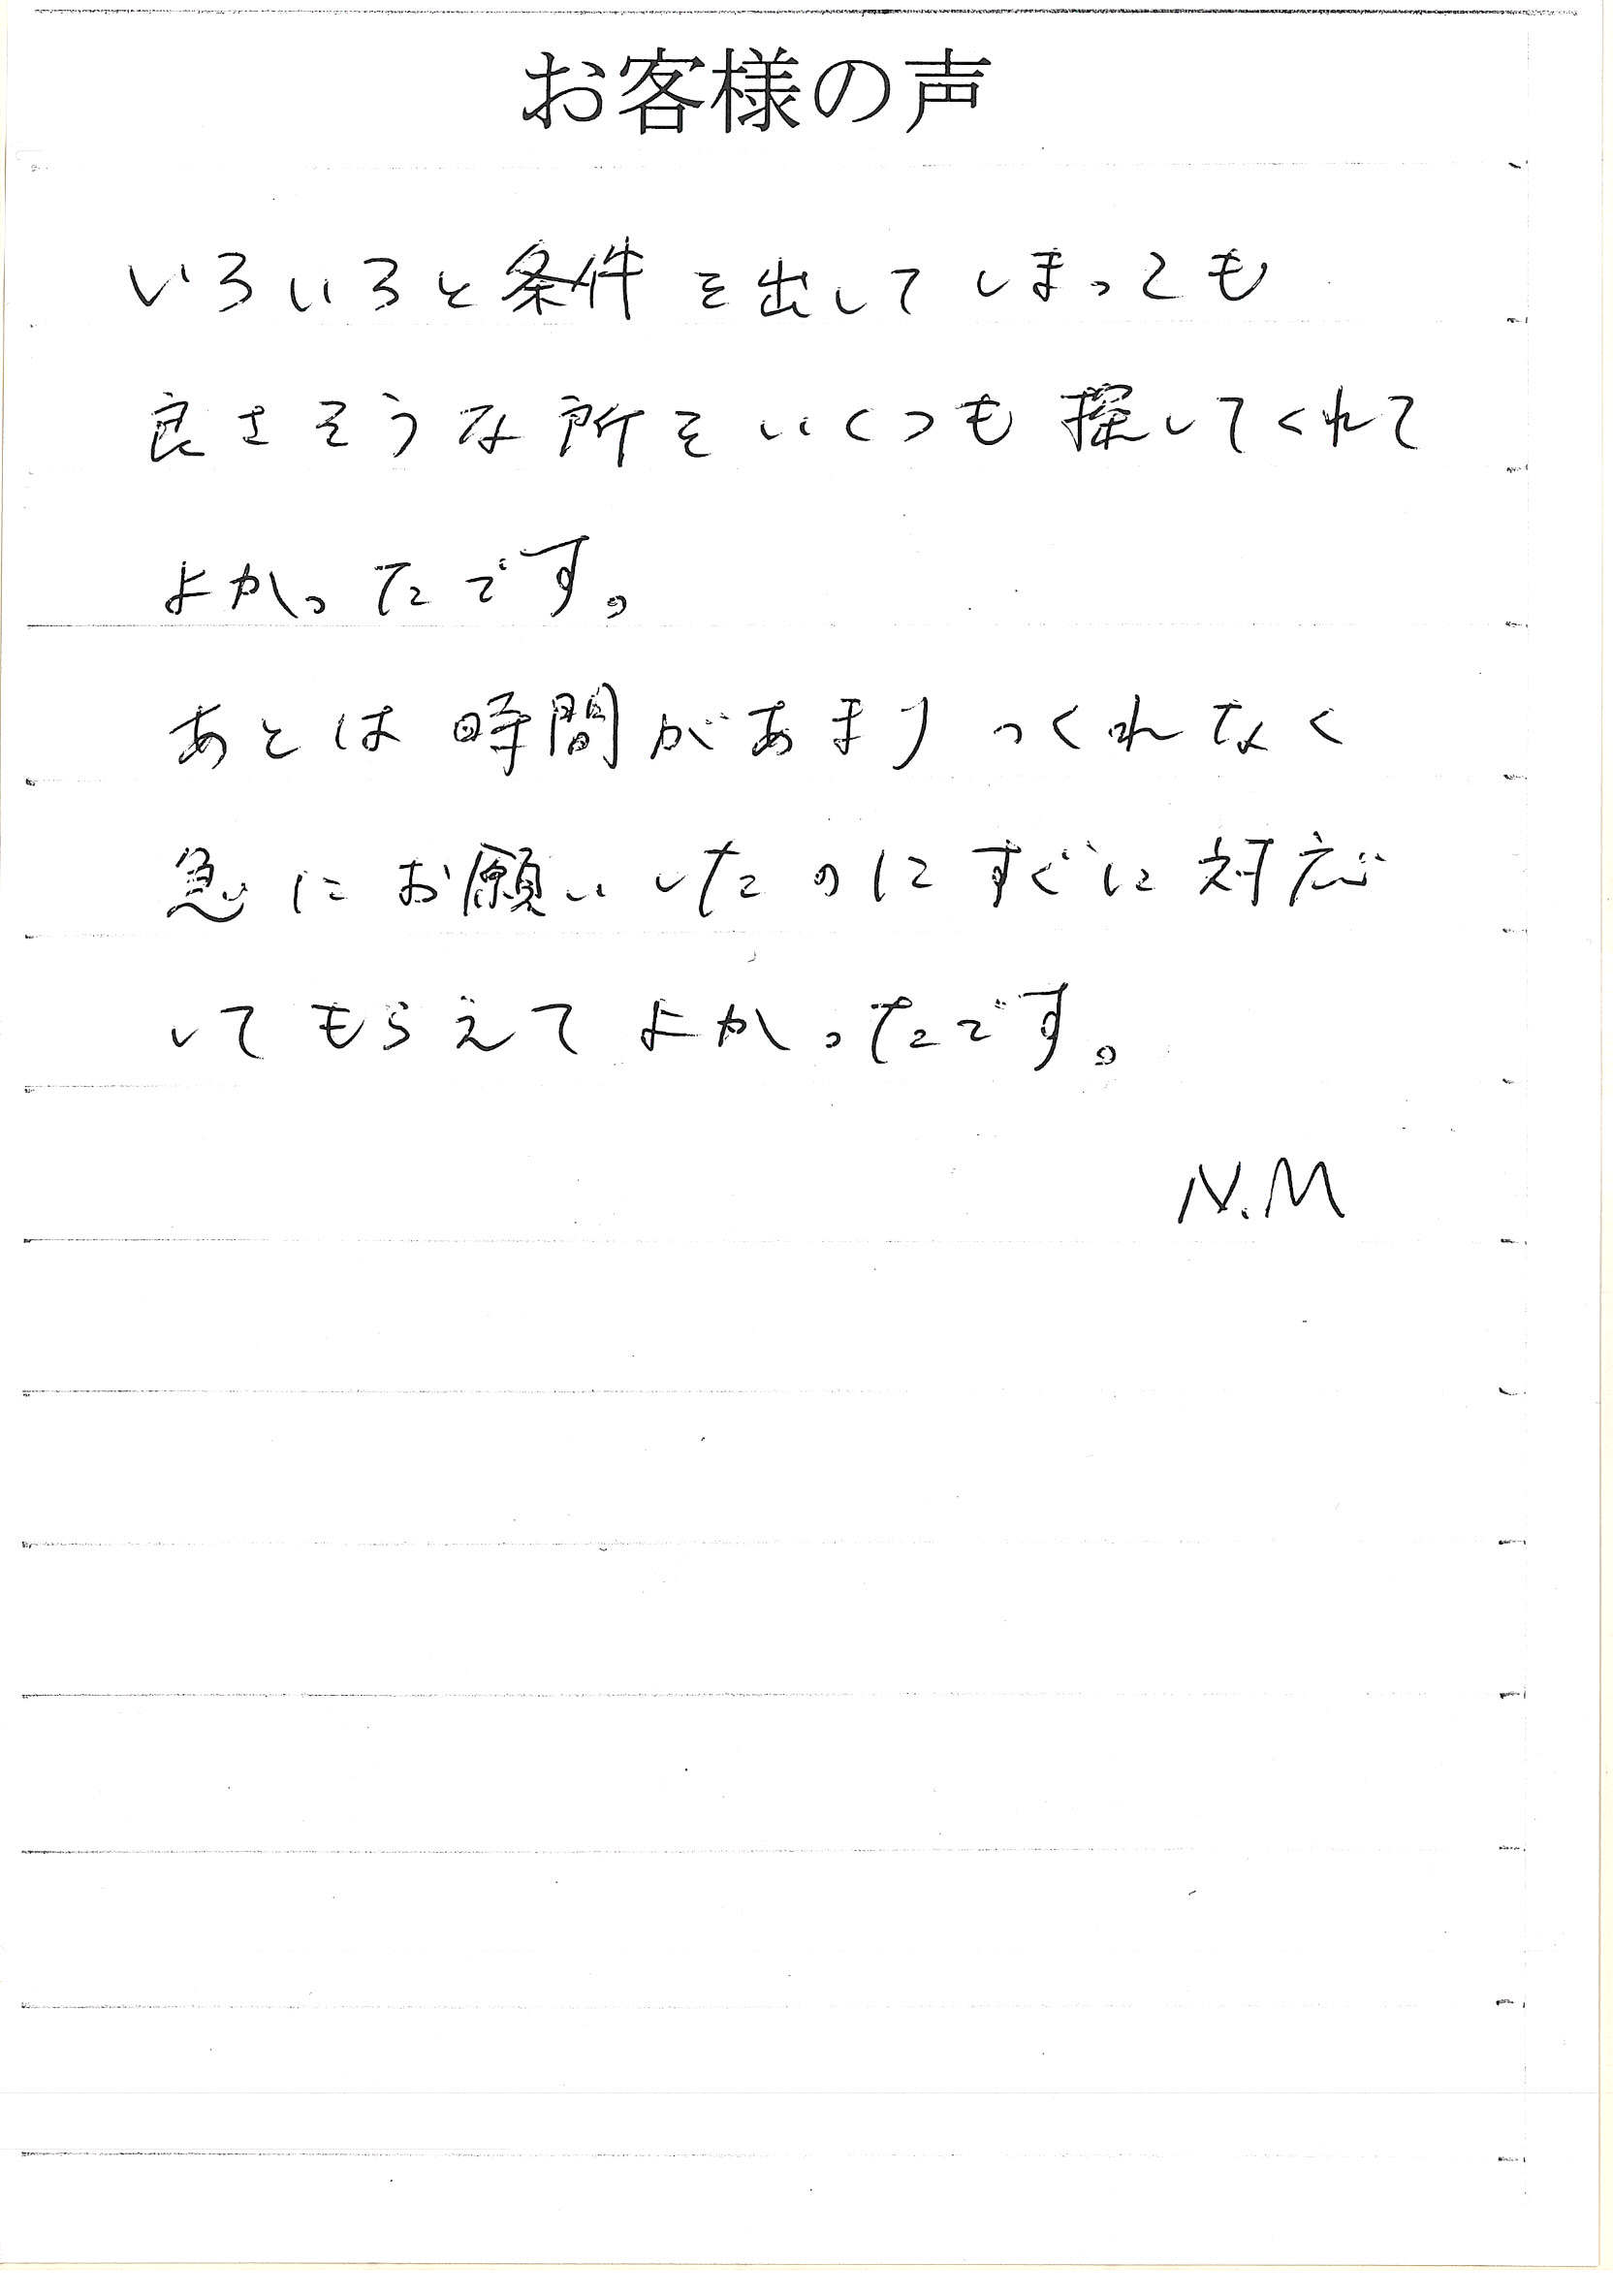 お客様の声
いろいろと条件を出してしまっても
良さそうな所をいくつも探してくれて
よかったです。
あとは時間があまりつくれなく
急にお願いしたのにすぐに対応
してもらえてよかったです。
N.M